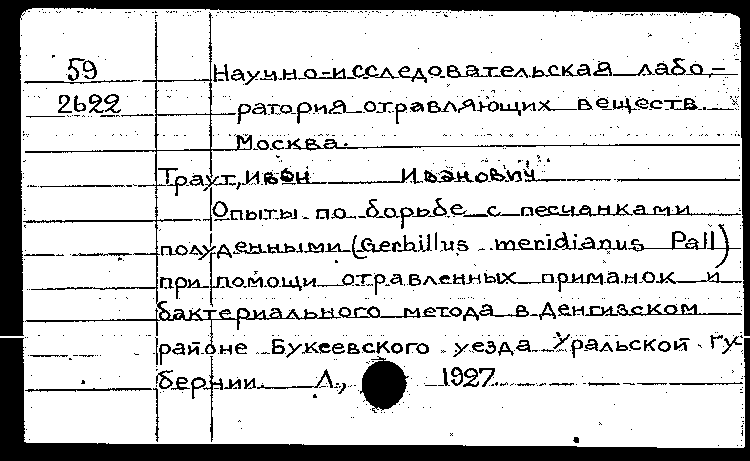 59 Научно-исследовательская лабо-
2622 ратория отравляющих веществ.
Москва.
Траут, Иван Иванович
Опыты по борьбе с песчанками
полуденными (Gerbillus meridianus Pall)
при помощи отравленных приманок и
бактериального метода в Денгизском
районе Букеевского уезда Уральской гу-
бернии. Л., 1927.